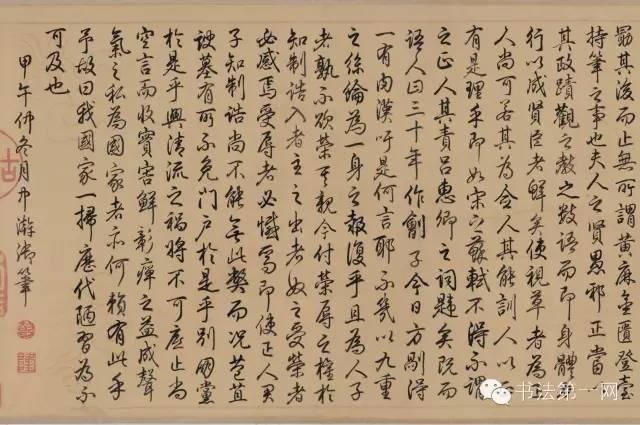 勗其後而止無所謂黄麻金匱登臺
持筆之事也夫人之賢愚邪正當以
其政蹟觀之教之數語而即身體
行以成賢臣者鮮矣使視草者為正
人尚可若其為僉人其能訓人以
有是理乎即如宋之蘇軾不得不謂
之正人其責呂惠卿之詞韙矣既而
語人曰三十年作劊子今日方剮得
一有肉漢吁是何言耶不幾以九重
之絲綸為一身之報復乎且為人子
者孰不欲榮其親今付榮辱之權於
知制誥入者主之出者奴之受榮者
必感焉受辱者必憾焉即使正人君
子知制誥尚不能無此弊而況苞苴
諛墓有所不免門戶於是乎別朋黨
於是乎興清流之禍將不可底止尚
空言而收實害鮮彰癉之益成聲
氣之私為國家者亦何賴有此乎
予故曰我國家一掃歷代陋習為不
可及也
甲午仲冬月中澣御筆
书法第一网